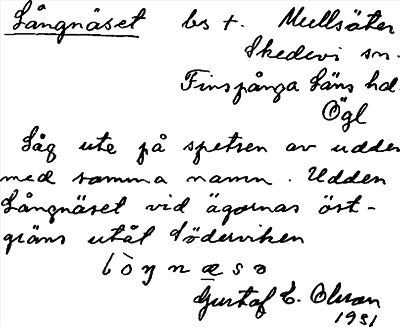 Långnäset bs t. Mullsäter
Skedevi sn.
Finspånga läns hd.
Ögl
Låg ute på spetsen av udden
med samma namn. Udden
Långnäset vid ägornas öst-
gräns utåt Söderviken
Gustaf E. Olsson
1931